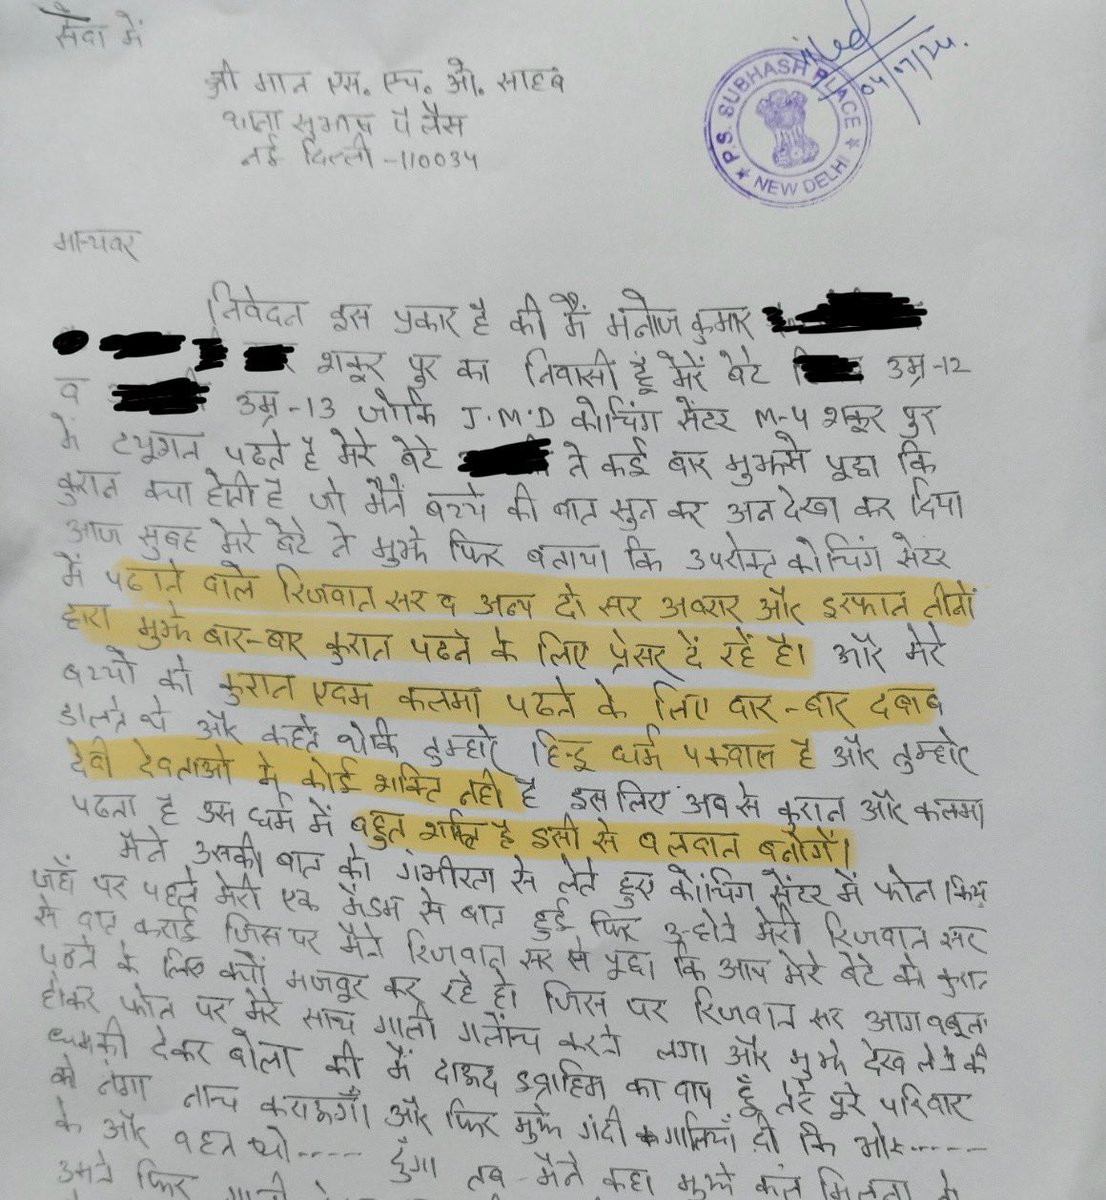 सेवा में
श्री मान एस. एच. ओ. साहब
थाना सुभाष पैलेस
नई दिल्ली -110034
P.S. SUBHASH PLACE
NEW DELHI
04/7/24.
मान्यवर
निवेदन इस प्रकार है की मैं मनोज कुमार
शकूर पुर का निवासी हूँ मेरें बेटे उम्र-12
व उम्र -13 जोकि J.M.D कोचिंग सेंटर M-4 शकूर पुर
में टयूशन पढते है मेरे बेटे ने कई बार मुझसे पूछा कि
कुरान क्या होती है जो मैनें बच्चे की बात सुन कर अनदेखा कर दिया
आज सुबह मेरे बेटे ने मुझे फिर बताया कि उपरोक्त कोचिंग सेंटर
में पढाने वाले रिजवान सर व अन्य दो सर अबरार और इरफान तीनों
द्वारा मुझे बार-बार कुरान पढने के लिए प्रेसर दें रहें है। और मेरे
बच्चों को कुरान एवम कलमा पढने के लिए बार-बार दबाब
डालते थे और कहते थेकि तुम्हारे हिन्दू धर्म पकवास है और तुम्हारे
देवी देवताओ में कोई शक्ति नही है इसलिए अब से कुरान और कलमा
पढना है इस धर्म में बहुत शक्ति है इसी से बलवान बनोगें।
मैने उसकी बात को गंभीरता से लेते हुए कोंचिग सेंटर में फोन किया
जहाँ पर पहले मेरी एक मैडम से बात हुई फिर उन्होने मेरी रिजवान सर
से बात कराई जिस पर मैने रिजवान सर से पूछा कि आप मेरे बेटे को कुरान
पढने के लिए क्यों मजबूर कर रहे हो। जिस पर रिजवान सर आग बबूला
होकर फोन पर मेरे साथ गाली गलौंच करने लगा और मुझे देख लेने की
धमकी देकर बोला की मैं दाऊद इब्राहिम का बाप हूँ तेरे पूरे परिवार
को नंगा नाच कराऊगाँ। और फिर मुझे गंदी गालियाँ दी कि
के और दुँगा तब मैने कहा मुझसे
उसने फिर